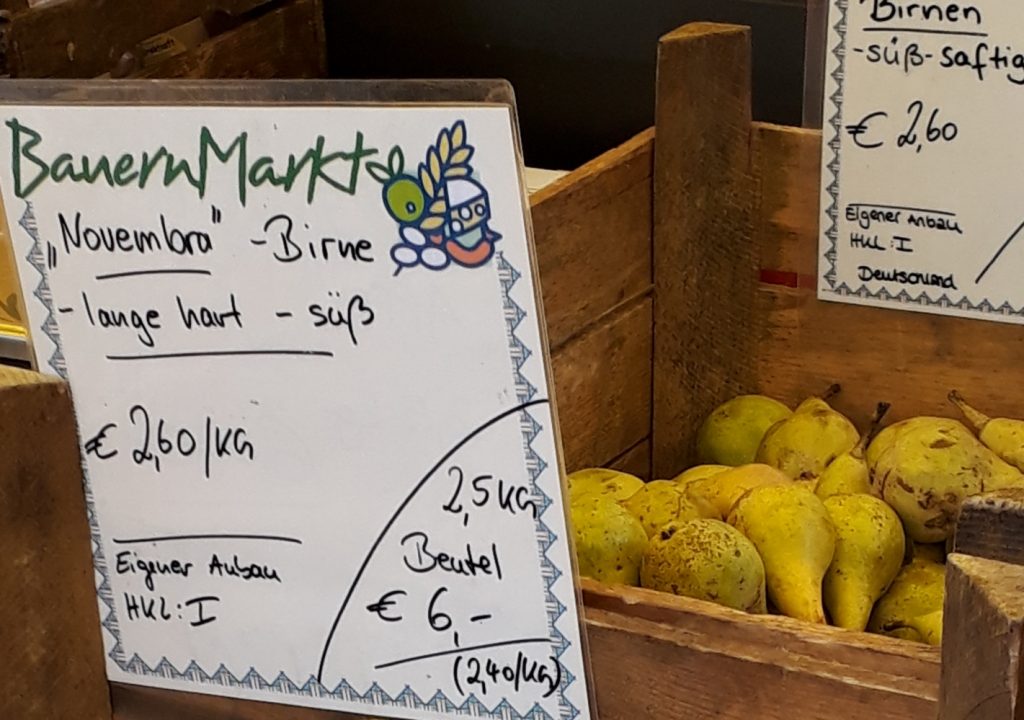 BauernMarkt
„Novembra" -Birne
- lange hart - süß
€ 2,60/KG
Eigener Anbau
HKL: I
2,5KG
Beutel
€ 6,-
(2,40/KG)
Birnen
-süß-saftig
€ 2,60
Eigener Anbau
HKL: I
Deutschland